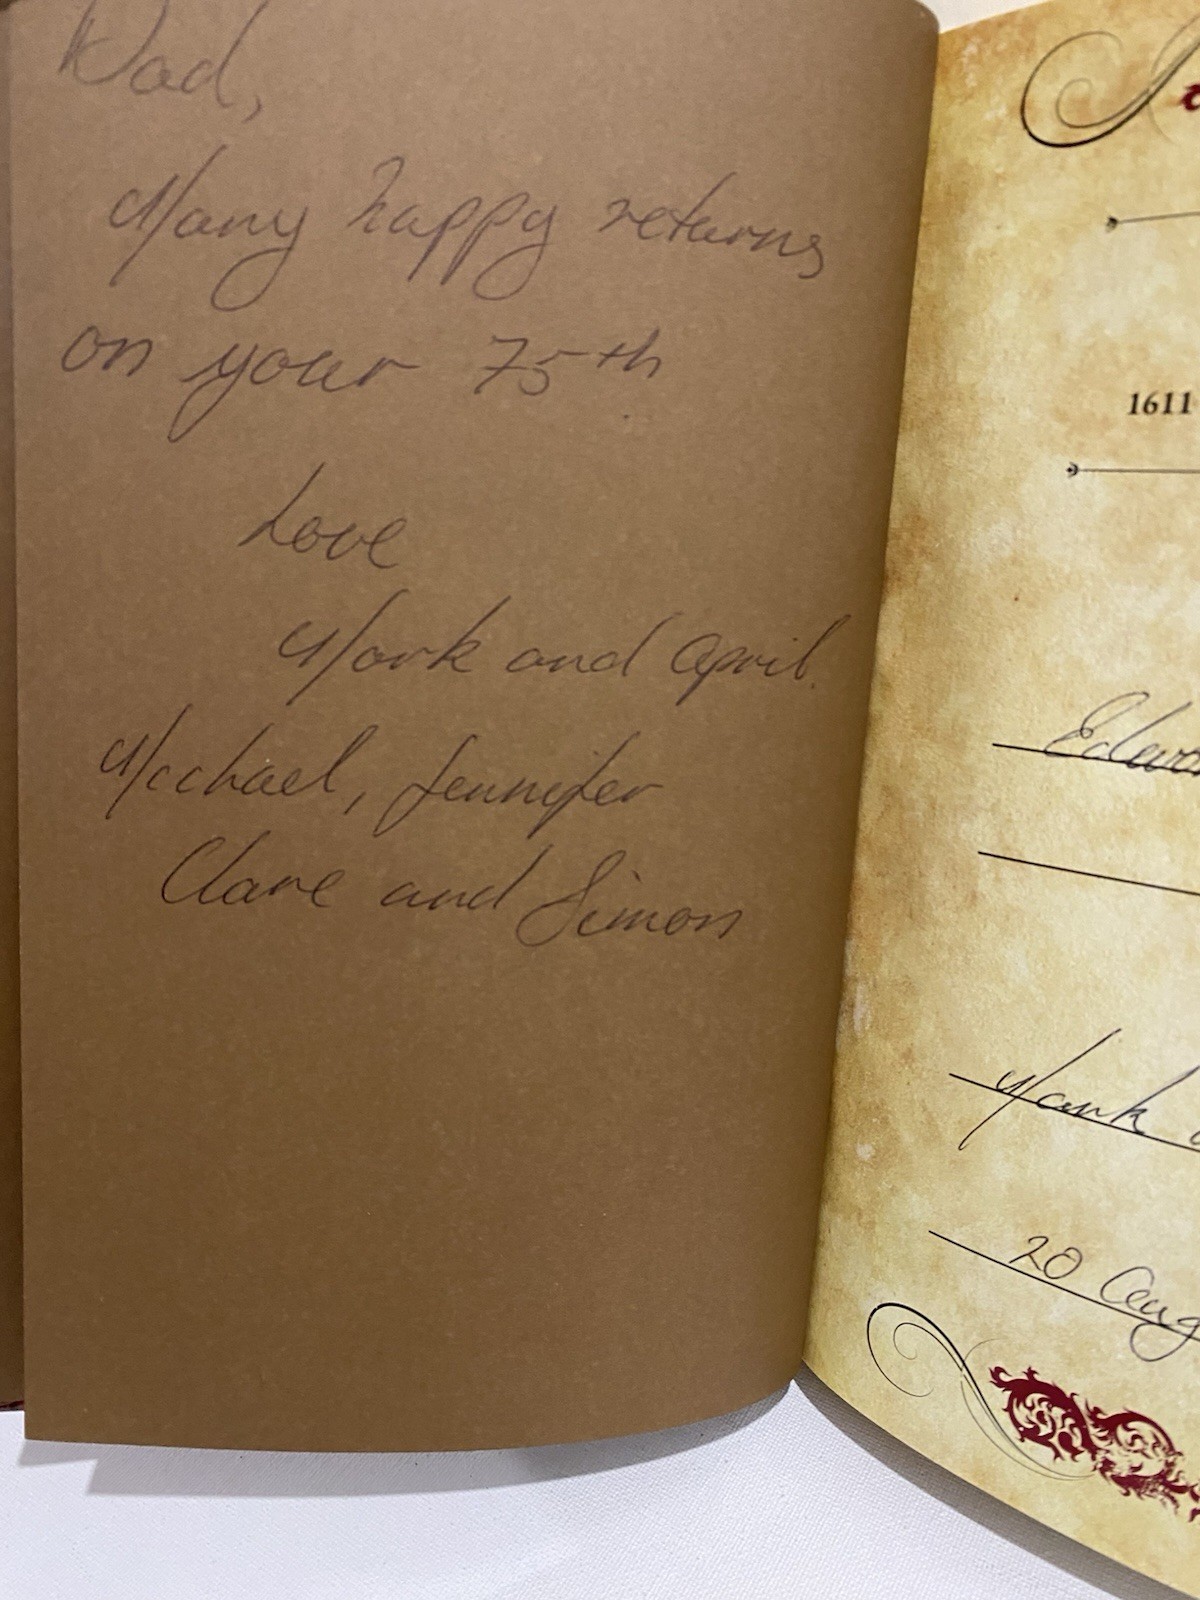 Dad,
Many happy returns
on your 75th
Love
Mark and April.
Michael, Jennifer
Clare and Simon
1611
Mark
20 Aug